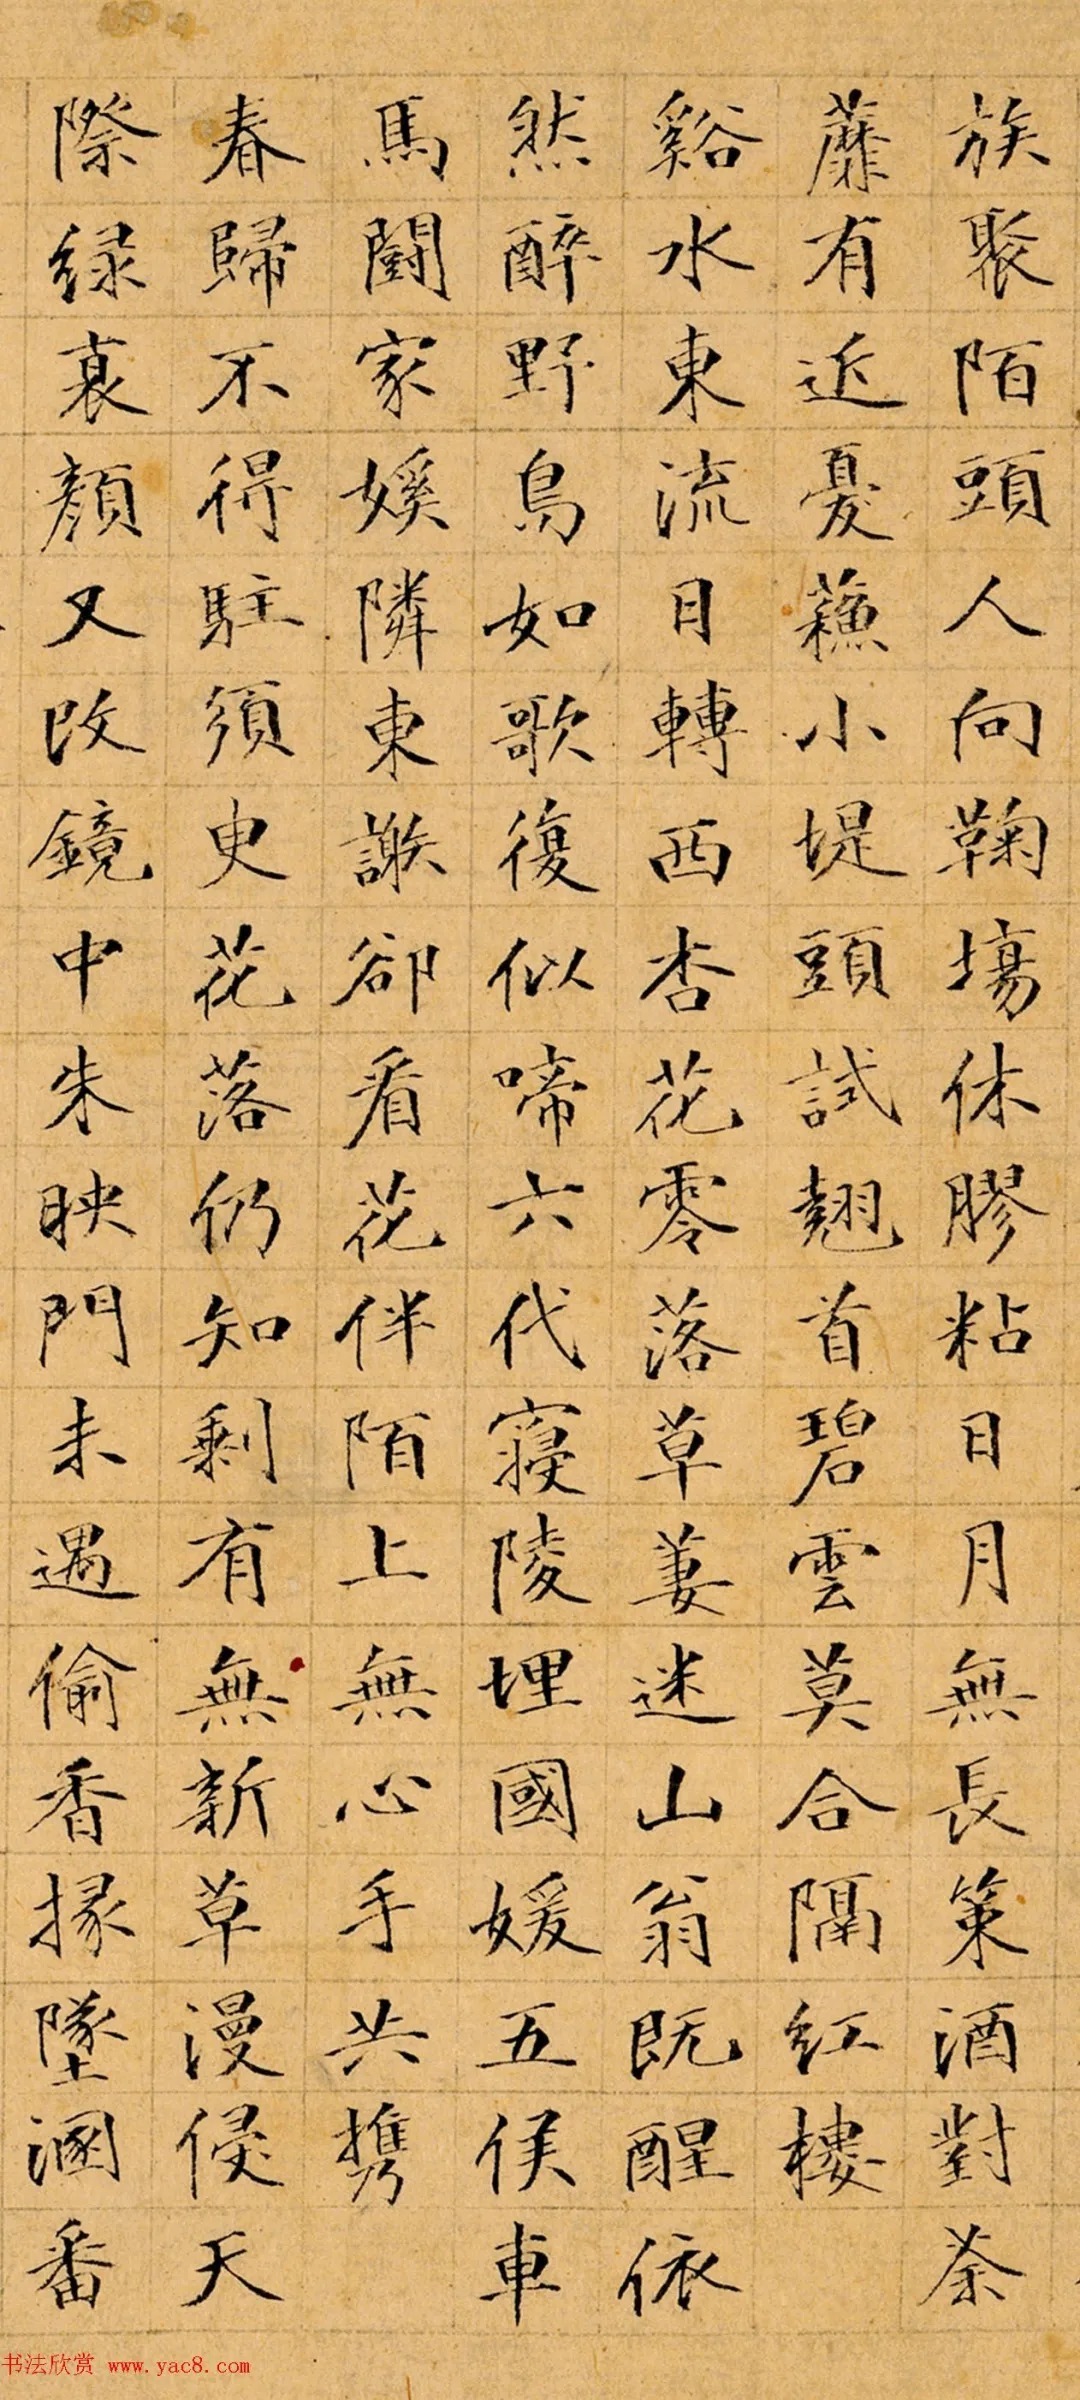 族聚陌頭人向鞠場休膠粘日月無長策酒對荼
蘼有近憂蘓小堤頭試翹首碧雲莫合隔紅樓
谿水東流日轉西杏花零落草萋迷山翁既醒依
然醉野鳥如歌復似啼六代寢陵埋國媛五侯車
馬鬭家娛隣東謝卻看花伴陌上無心手共携
春歸不得駐須臾花落仍知剩有無新草漫侵天
際綠衰顏又改鏡中朱映門未遇偷香掾墜溷番
书法欣赏 www.yac8.com